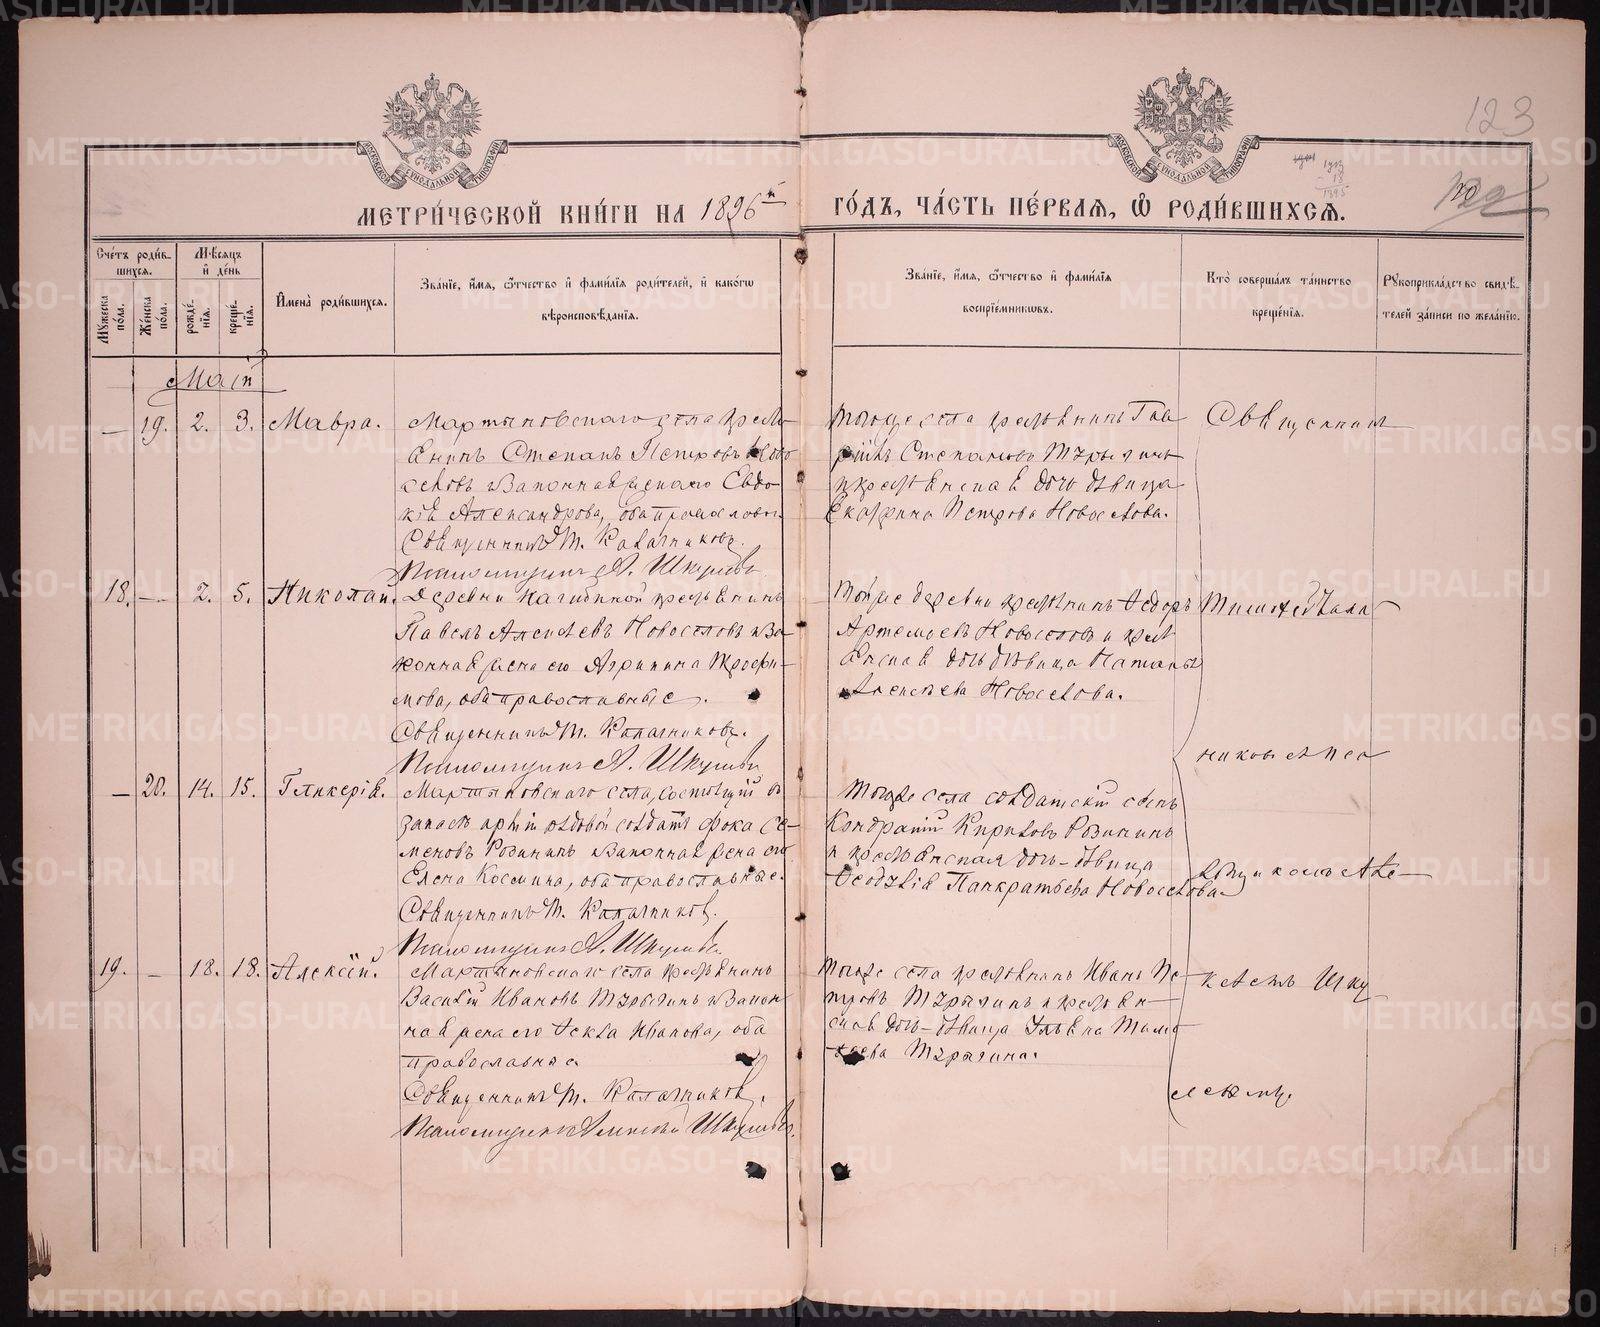 123
МЕТРИ́ЧЕСКОЙ КНИ́ГИ НА 1896й
ГО́ДЪ, ЧА́СТЬ ПЕ́РВАЯ, Ѡ҆ РОДИ́ВШИХСЯ.
Сче́тъ роди́в-
шихся.
Мꙋ́жеска по́ла.
Же́нска по́ла.
Мѣ́сяцъ и҆ де́нь
рожде́-
нїя.
креще́-
нїя.
И҆мена̀ роди́вшихся.
Зва́нїе, и҆́мя, ѻ҆́тчество и҆ фами́лїя роди́телей, и҆ како́гѡ
вѣроисповѣ́данїя.
Зва́нїе, и҆́мя, ѻ҆́тчество и҆ фами́лїя
воспрїе́мникѡвъ.
Кто̀ соверша́лъ та́инство
креще́нїя.
Рꙋкоприкла́дство свидѣ́-
телей за́писи по жела́нїю.
Май
— 19. 2. 3. Мавра.
Мартыновскаго села кресть-
янинъ Степанъ Петровъ Ново
селовъ и законная жена его Евдо-
кія Александрова, оба православн.
Священникъ Т. Калачниковъ.
Псаломщикъ А. Шкулевъ
Тогоже села крестьянинъ Гав
ріилъ Степановъ Тзрыкинъ
и крестьянская дочь девица
Екатерина Петрова Новоселова.
18. — 2. 5. Николай.
Деревни Нагибиной крестьянинъ
Павелъ Алексеевъ Новоселовъ и за-
конная жена его Агрипина Трофи-
мова, оба православные.
Священникъ Т. Калачниковъ.
Псаломщикъ А. Шкулевъ
Тойже деревни крестьянинъ Ѳедоръ
Артемьевъ Новоселовъ и крест
янская дочь девица Наталья
Алексеева Новоселова.
— 20. 14. 15. Гликерія.
Мартыновскаго села, состоящій въ
запасе арміи рядовой солдатъ Фока Се-
меновъ Розининъ и законная жена его
Елена Космина, оба православные.
Священникъ Т. Калачниковъ.
Псаломщикъ А. Шкулевъ
Тогоже села солдатскій сынъ
Кондратій Кириловъ Розининъ
и крестьянская дочь-девица
Ѳеодулія Панкратьева Новоселова.
19. — 18. 18. Алексій.
Мартыновскаго села крестьянинъ
Василій Ивановъ Тзрыкинъ и закон-
ная жена его Ѳекла Иванова, оба
православные.
Священникъ Т. Калачниковъ.
Псаломщикъ Алексей Шкулевъ.
Тогоже села крестьянинъ Иванъ Пе-
тровъ Тзрыкинъ и крестьян-
ская дочь-девица Ульяна Тимо-
феева Тзрыкина.
Священникъ
Тимофей Кала
никовъ с Пса
ломщикомъ Але-
ксеемъ Шку
левымъ.